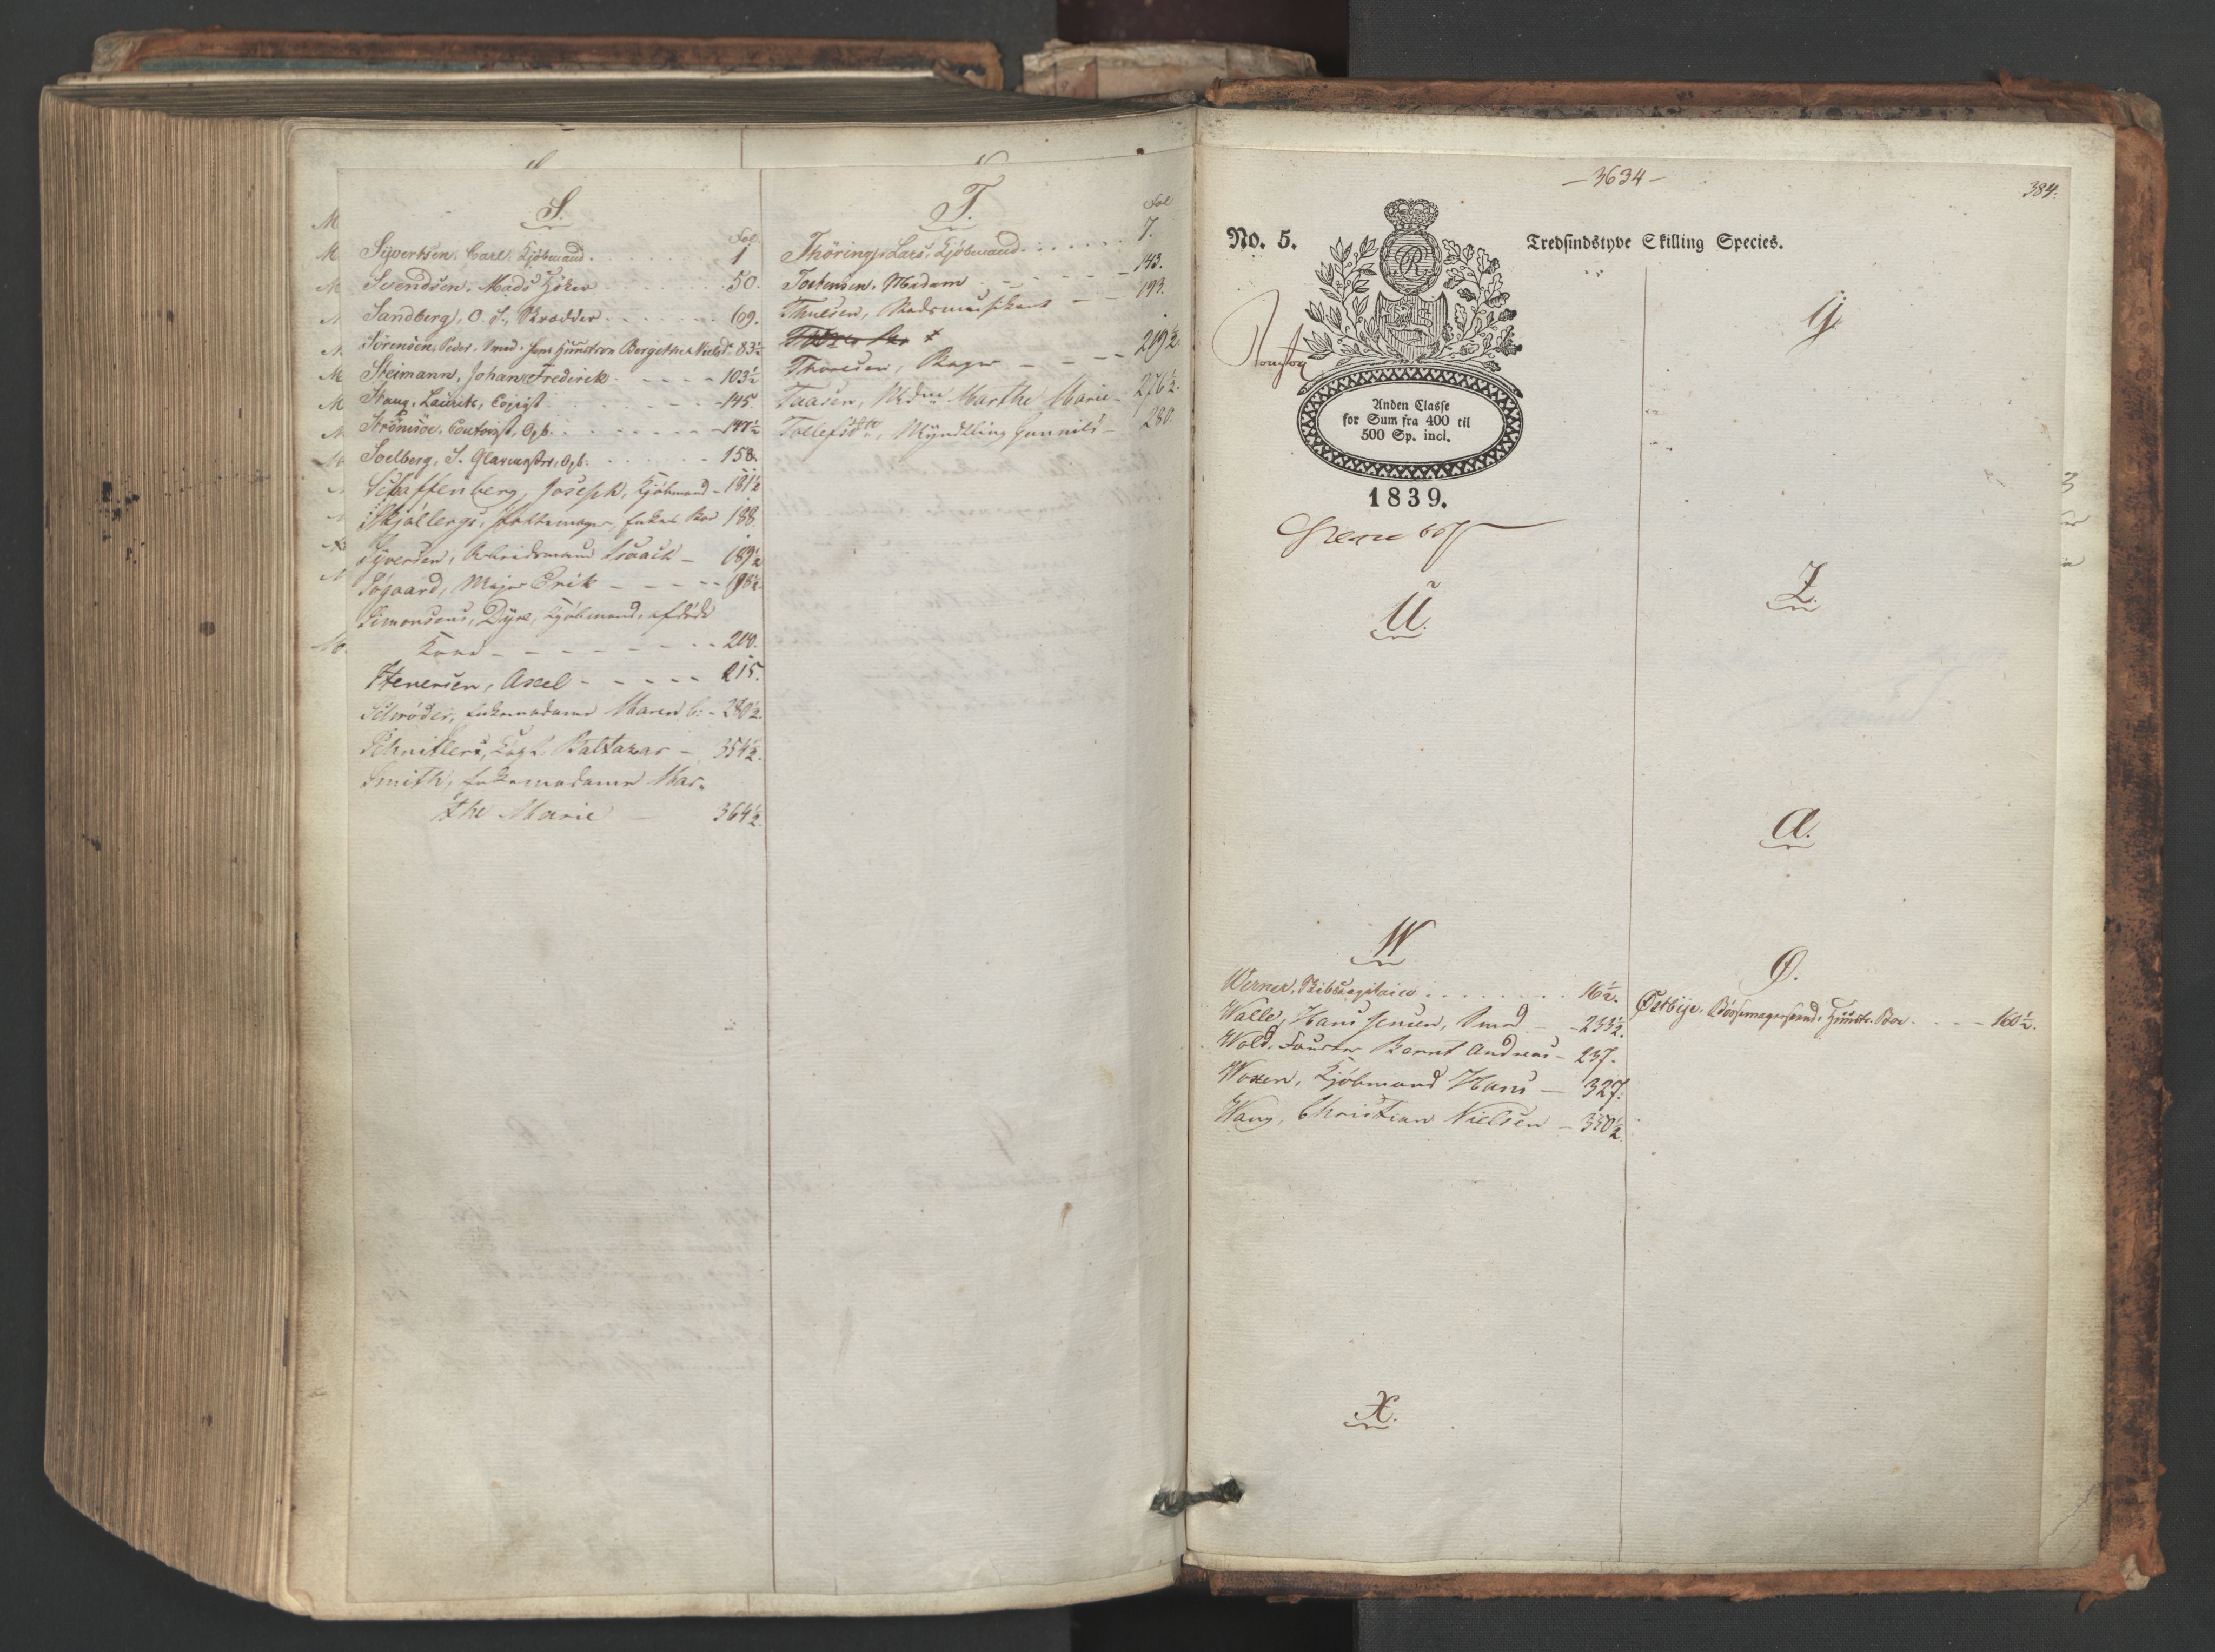 S.
Fol.
Sivertsen, Carl, Kjöbmand. 1
Svendsen, Mads Höker 50.
Sandberg, O. S., Skrædder 69.
Sörensen, Peder, Smed, hans Hustroe Bergithe Nielsd. 83½
Steimann, Johan Frederik 103½
Staug, Lauritz, Copist 145.
Strömsöe, Contorist, Ogb. 147½
Soelberg, S. Glarmester, Ogb. 158.
Schaffenberg, Joseph, Kjöbmand 181½
Skjöllergs, Pottemager, Enkes Boe 188.
Syversen, Arbeidsmand Isaach 189½
Søgaard, Major Erik 198½
Simonsens, Dyre, Kjöbmand, afdöde
Kone 200.
Stenersen, Axel 215.
Schrøder, Enkemadame Maren C: 280½
Schnitlers, Capt. Baltazar 354½
Smith, Enkemadame Mar-
the Marie 364½
T.
Fol
Thöring, Lars, Kjöbmand 7.
Torstensen, Madam 143.
Thuesen, Stadsmusikant 193.
Thoresen, Bager 219½
Taasen, Mdm Marthe Marie 276½
Tollefsdtr., Myndtling Gunnild 280.
- 3634 -
384.
No. 5.
Tredsindstyve Skilling Species.
R
Anden Classe
for Sum fra 400 til
500 Sp. incl.
1839.
U.
W
Werner, Skibscapitain 16½.
Walle, Hans Jensen, Smed 233½
Wold, Fourer Bernt Andreas 237.
Woxen, Kjöbmand Hans 327.
Wang, Christian Nielsen 350½
X.
Y
Z.
A.
Ø.
Østbye, Bössemagersvend, Hustr. Boe 160½.